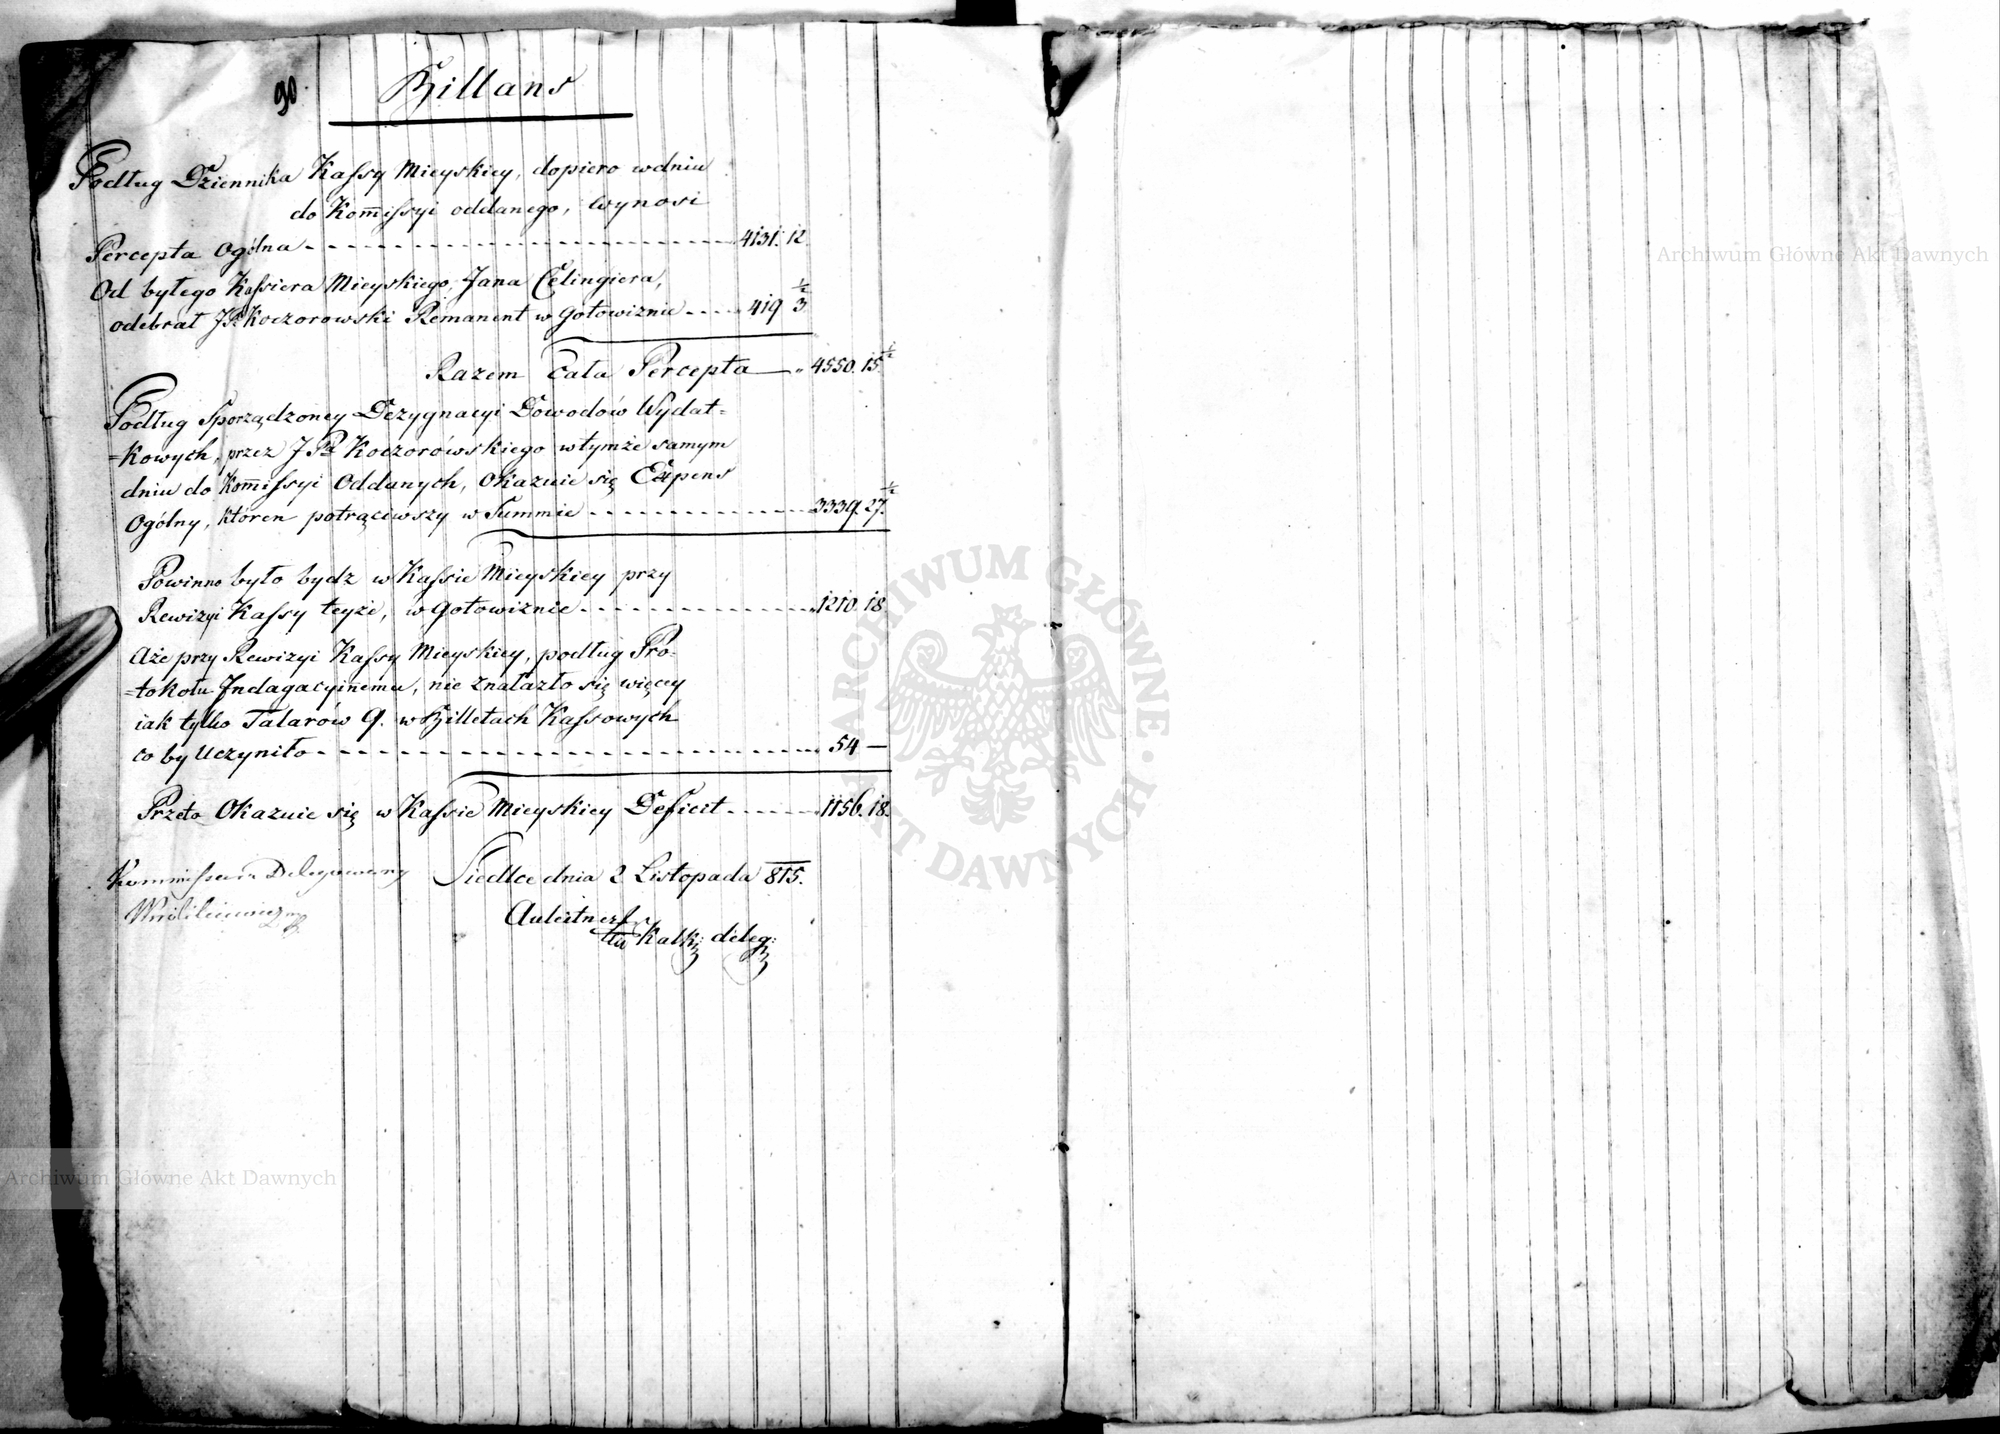 90.
Billans
Podług Dziennika Kassy Mieyskiey, dopiero w dniu
do Kom̅issyi oddanego, wynosi
Percepta Ogólna - - - - 4131. 12
Od byłego Kassiera Mieyskiego, Jana Celingiera,
odebrał JP Koczorowski Remanent w Gotowiznie - - - - 419 3 ½
Razem cała Percepta — „ 4550. 15 ½
Podług Sporządzoney Dezygnacyi Dowodów Wydat=
=kowych, przez JP Koczorówskiego w tymże samym
dniu do Kom̅issyi Oddanych, Okazuie się Expens
Ogólny, któren potrąciwszy w Summie - - - - 3339. 27. ½
Powinno było bydz w Kassie Mieyskiey przy
Rewizyi Kassy teyże, w Gotowiznie - - - - 1210. 18.
Aże przy Rewizyi Kassy Mieyskiey, podług Pro=
=tokołu Indagacyinemu, nie znalazło się więcey
iak tylko Talarów 9. w Billetach Kassowych
co by Uczyniło - - - - 54 —
Przeto Okazuie się w Kassie Mieyskiey Deficit - - - - 1156. 18.
Kommissarz Delegowany
Siedlce dnia 2 Listopada 815.
Kalk: deleg:
Archiwum Główne Akt Dawnych
Archiwum Główne Akt Dawnych
ARCHIWUM GŁÓWNE AKT DAWNYCH